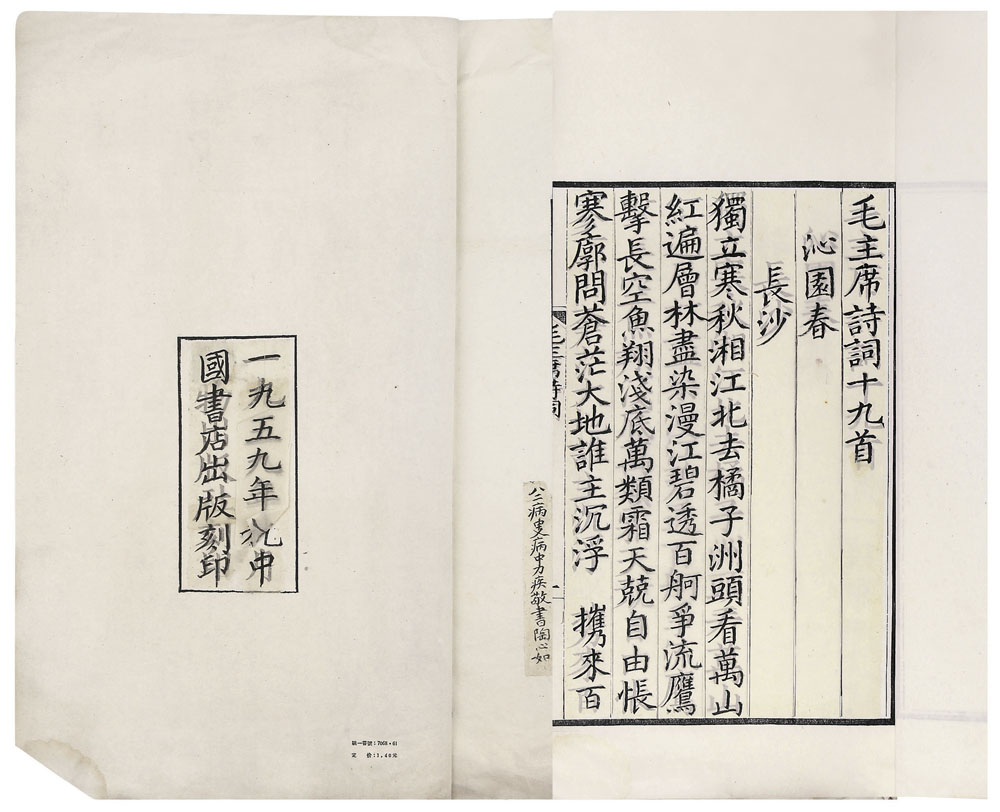 毛主席詩詞十九首
沁園春
長沙
獨立寒秋湘江北去橘子洲頭看萬山
紅遍層林盡染漫江碧透百舸爭流鷹
擊長空魚翔淺底萬類霜天兢自由悵
寥廓問蒼茫大地誰主沉浮 擕來百
毛主席詩詞
八三病叟病中力疾敬書陶心如
一九五九年 中
國書店出版刻印
統一書號:7068·61
定 價:1.40元